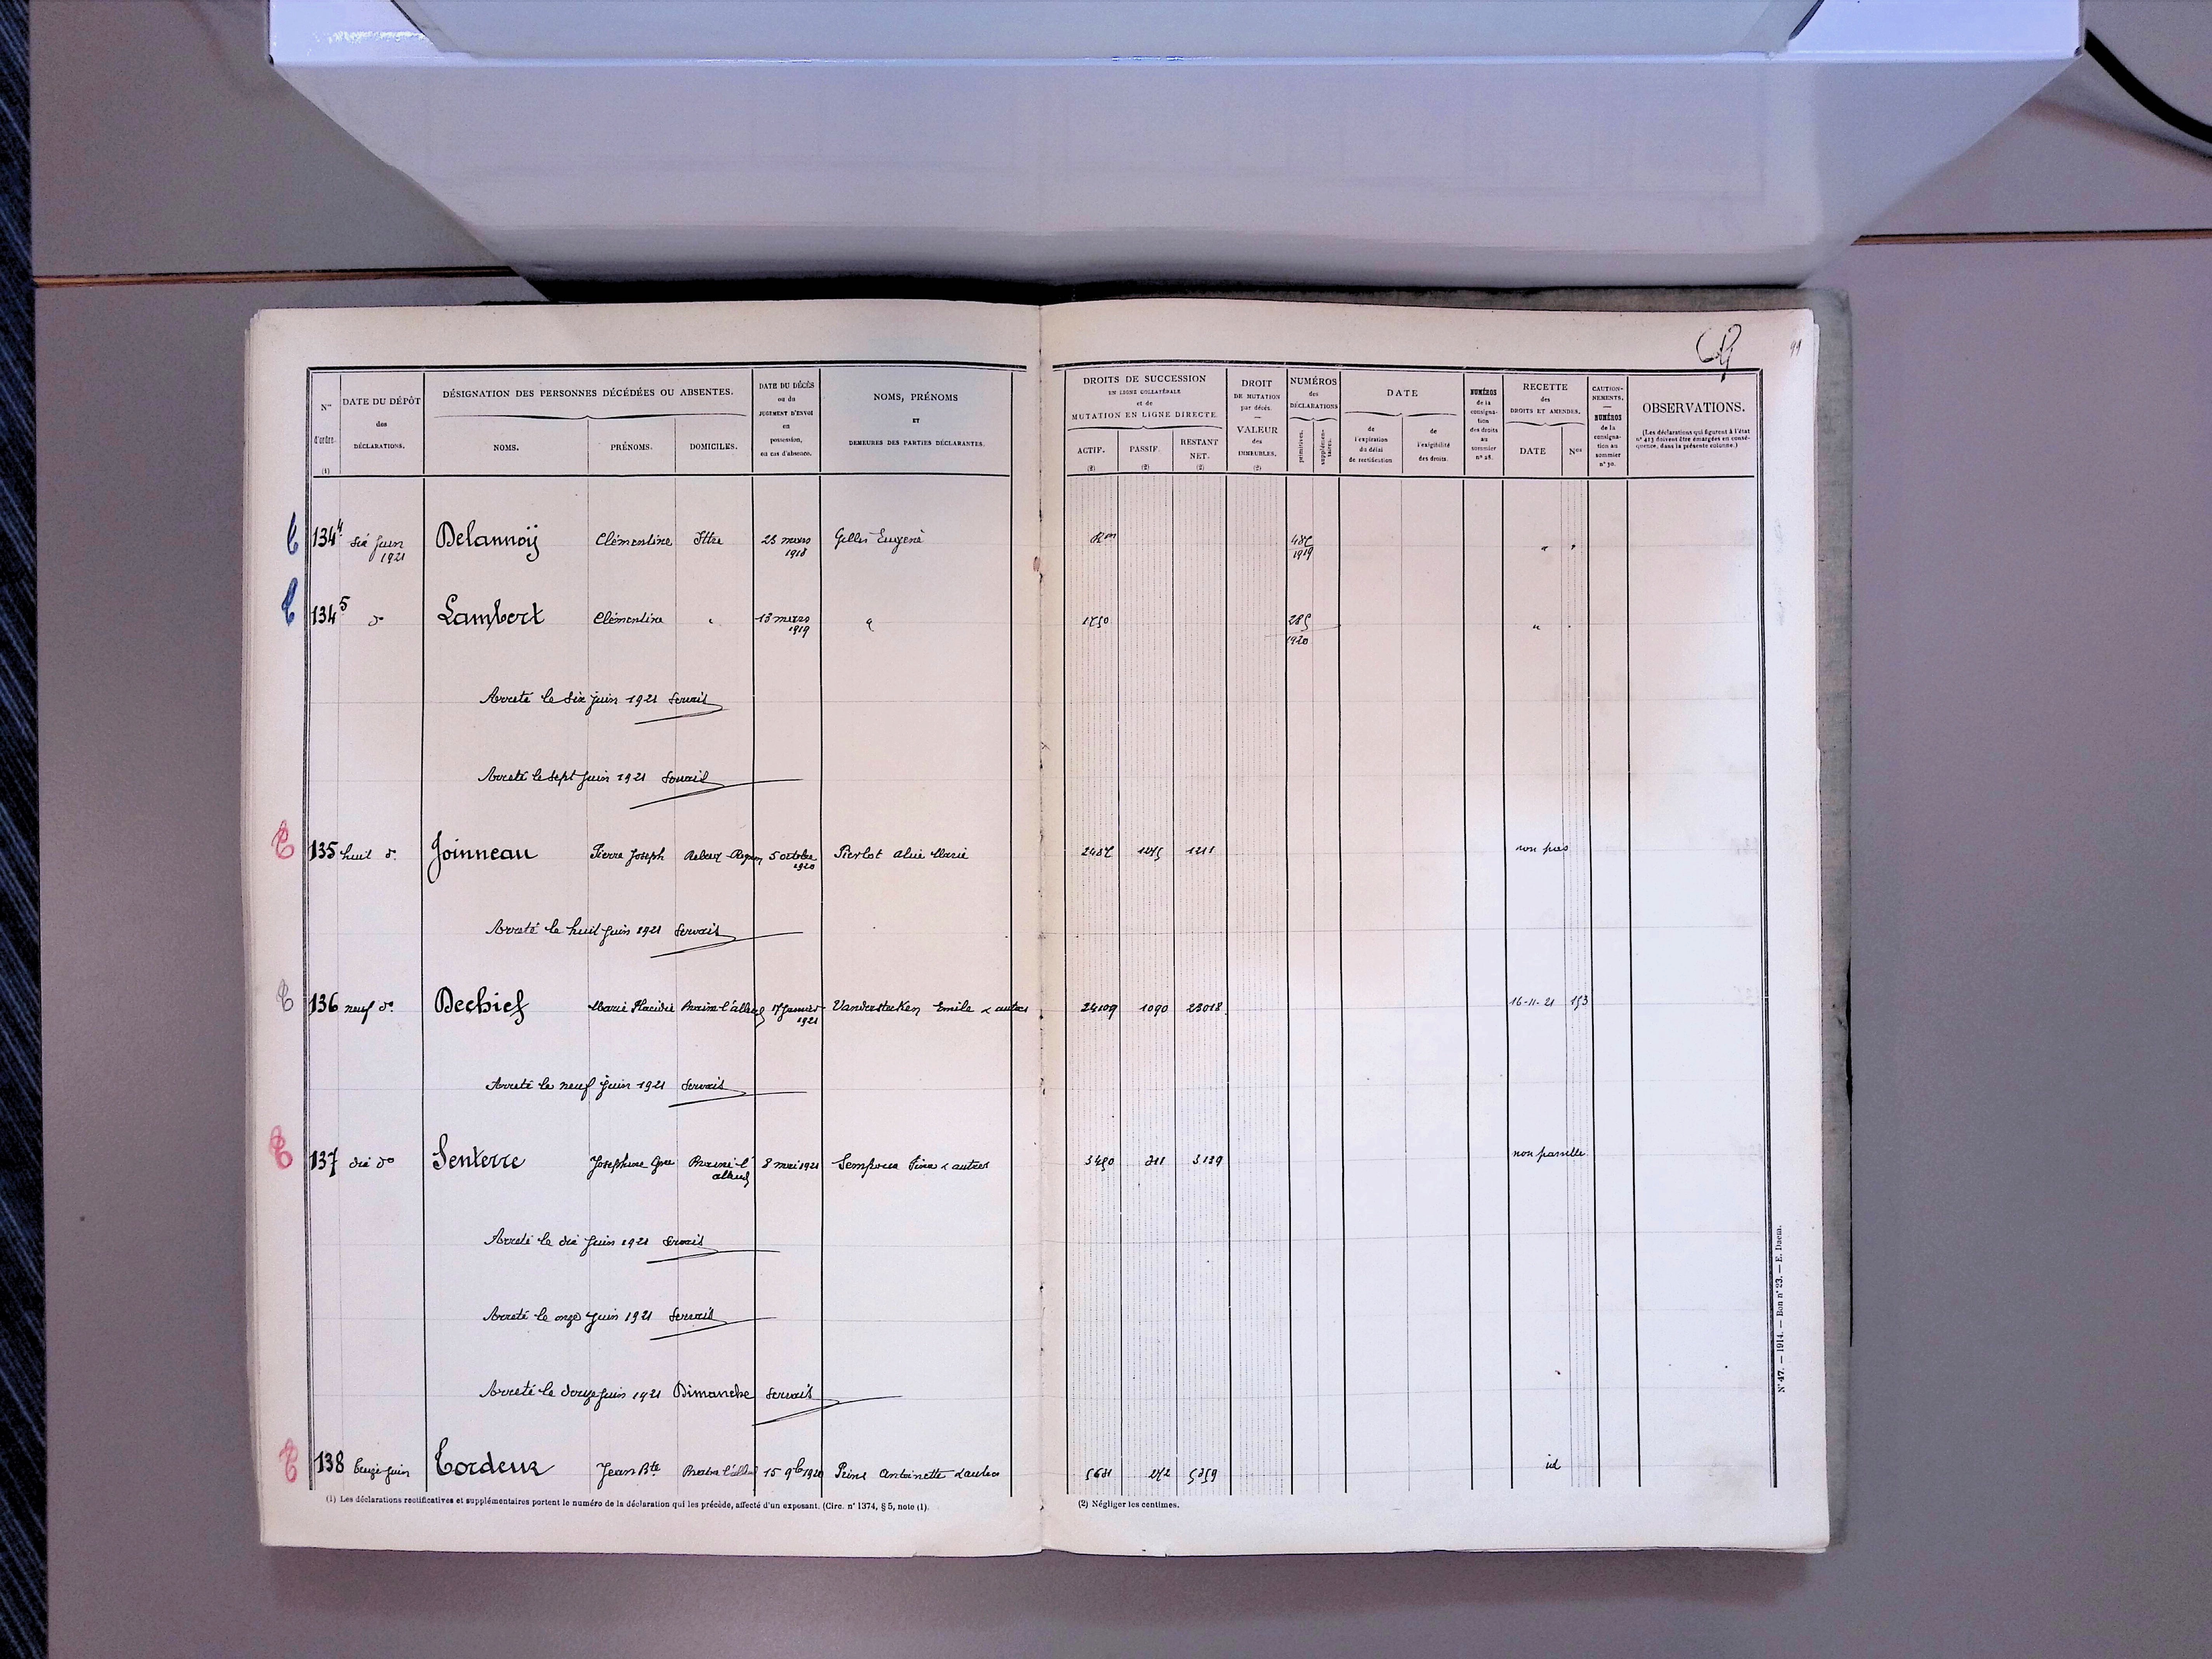 99
Nos d'ordre. (1)
DATE DU DÉPÔT des DÉCLARATIONS.
DÉSIGNATION DES PERSONNES DÉCÉDÉES OU ABSENTES.
NOMS.
PRÉNOMS.
DOMICILES.
DATE DU DÉCÈS ou du JUGEMENT D'ENVOI en possession, en cas d'absence.
NOMS, PRÉNOMS ET DEMEURES DES PARTIES DÉCLARANTES.
DROITS DE SUCCESSION EN LIGNE COLLATÉRALE et de MUTATION EN LIGNE DIRECTE
ACTIF. (2)
PASSIF. (2)
RESTANT NET. (2)
DROIT DE MUTATION par décès. — VALEUR des IMMEUBLES. (2)
NUMÉROS des DÉCLARATIONS
primitives.
supplémentaires.
DATE
de l'expiration du délai de rectification
de l'exigibilité des droits.
NUMÉROS de la consignation des droits au sommier n° 28.
RECETTE des DROITS ET AMENDES.
DATE
Nos
CAUTIONNEMENTS. — NUMÉROS de la consignation au sommier n° 30.
OBSERVATIONS.
(Les déclarations qui figurent à l'état n° 413 doivent être émargées en conséquence, dans la présente colonne.)
134⁴ six juin 1921 Delannoÿ Clémentine Ittre 23 mars 1918 Gilles Eugène 1919
134⁵ d° Lambert Clémentine " 13 mars 1919 285 1920
Arreté le six juin 1921 Servais
Arreté le sept juin 1921 Servais
135 huit d° Joinneau Pierre Joseph 5 octobre 1920 Pierlot Marie 1211 non pas
Arreté le huit juin 1921 Servais
136 neuf d° Dechief Marie Placidie Braine-l'alleud 17 Janvier 1921 Vandersteken Emile & autres 24109 1090 23018 16-11-21 153
Arreté le neuf juin 1921 Servais
137 dix d° Senterre Josephine Braine-l'alleud 8 mai 1921 & autres 3139 non passible
Arreté le dix juin 1921 Servais
Arreté le onze juin 1921 Servais
Arreté le douze juin 1921 Dimanche Servais
138 treize juin Tordeur Jean Bte Braine l'alleud 15 9b 1920 Antoinette & autres id
(1) Les déclarations rectificatives et supplémentaires portent le numéro de la déclaration qui les précède, affecté d'un exposant. (Circ. n° 1374, § 5, note (1).
(2) Négliger les centimes.
N° 47. — 1914. — Bon n° 23. — E. Daem.